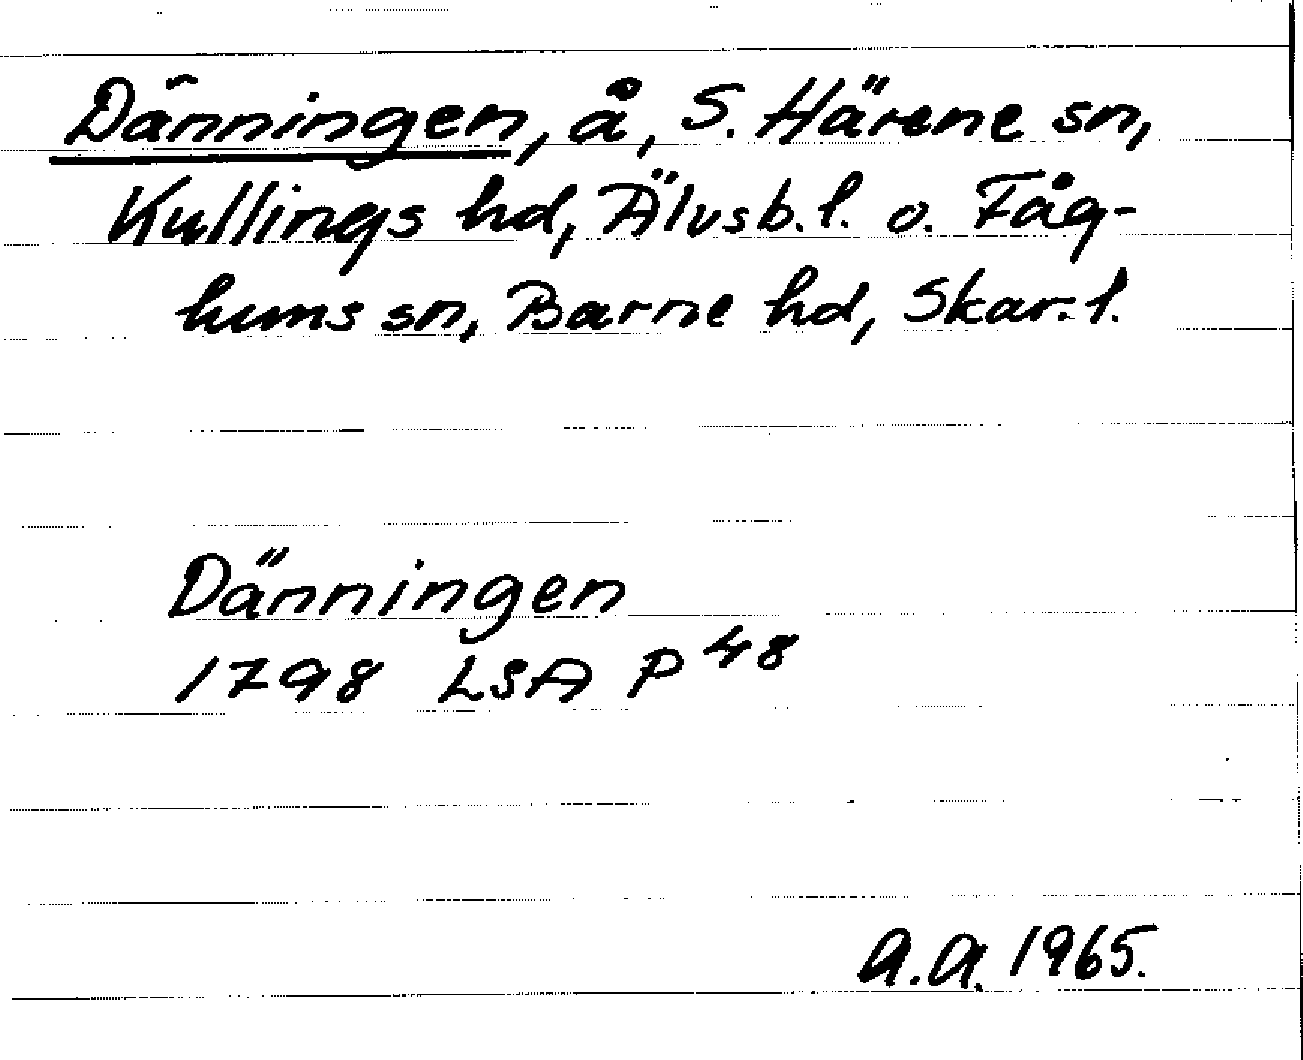 Dänningen, å, S. Härene sn,
Kullings hd, Älvsb. l. o. Fåg-
hums sn, Barne hd, Skar. l.
Dänningen
1798 LSA P 48
A.A. 1965.